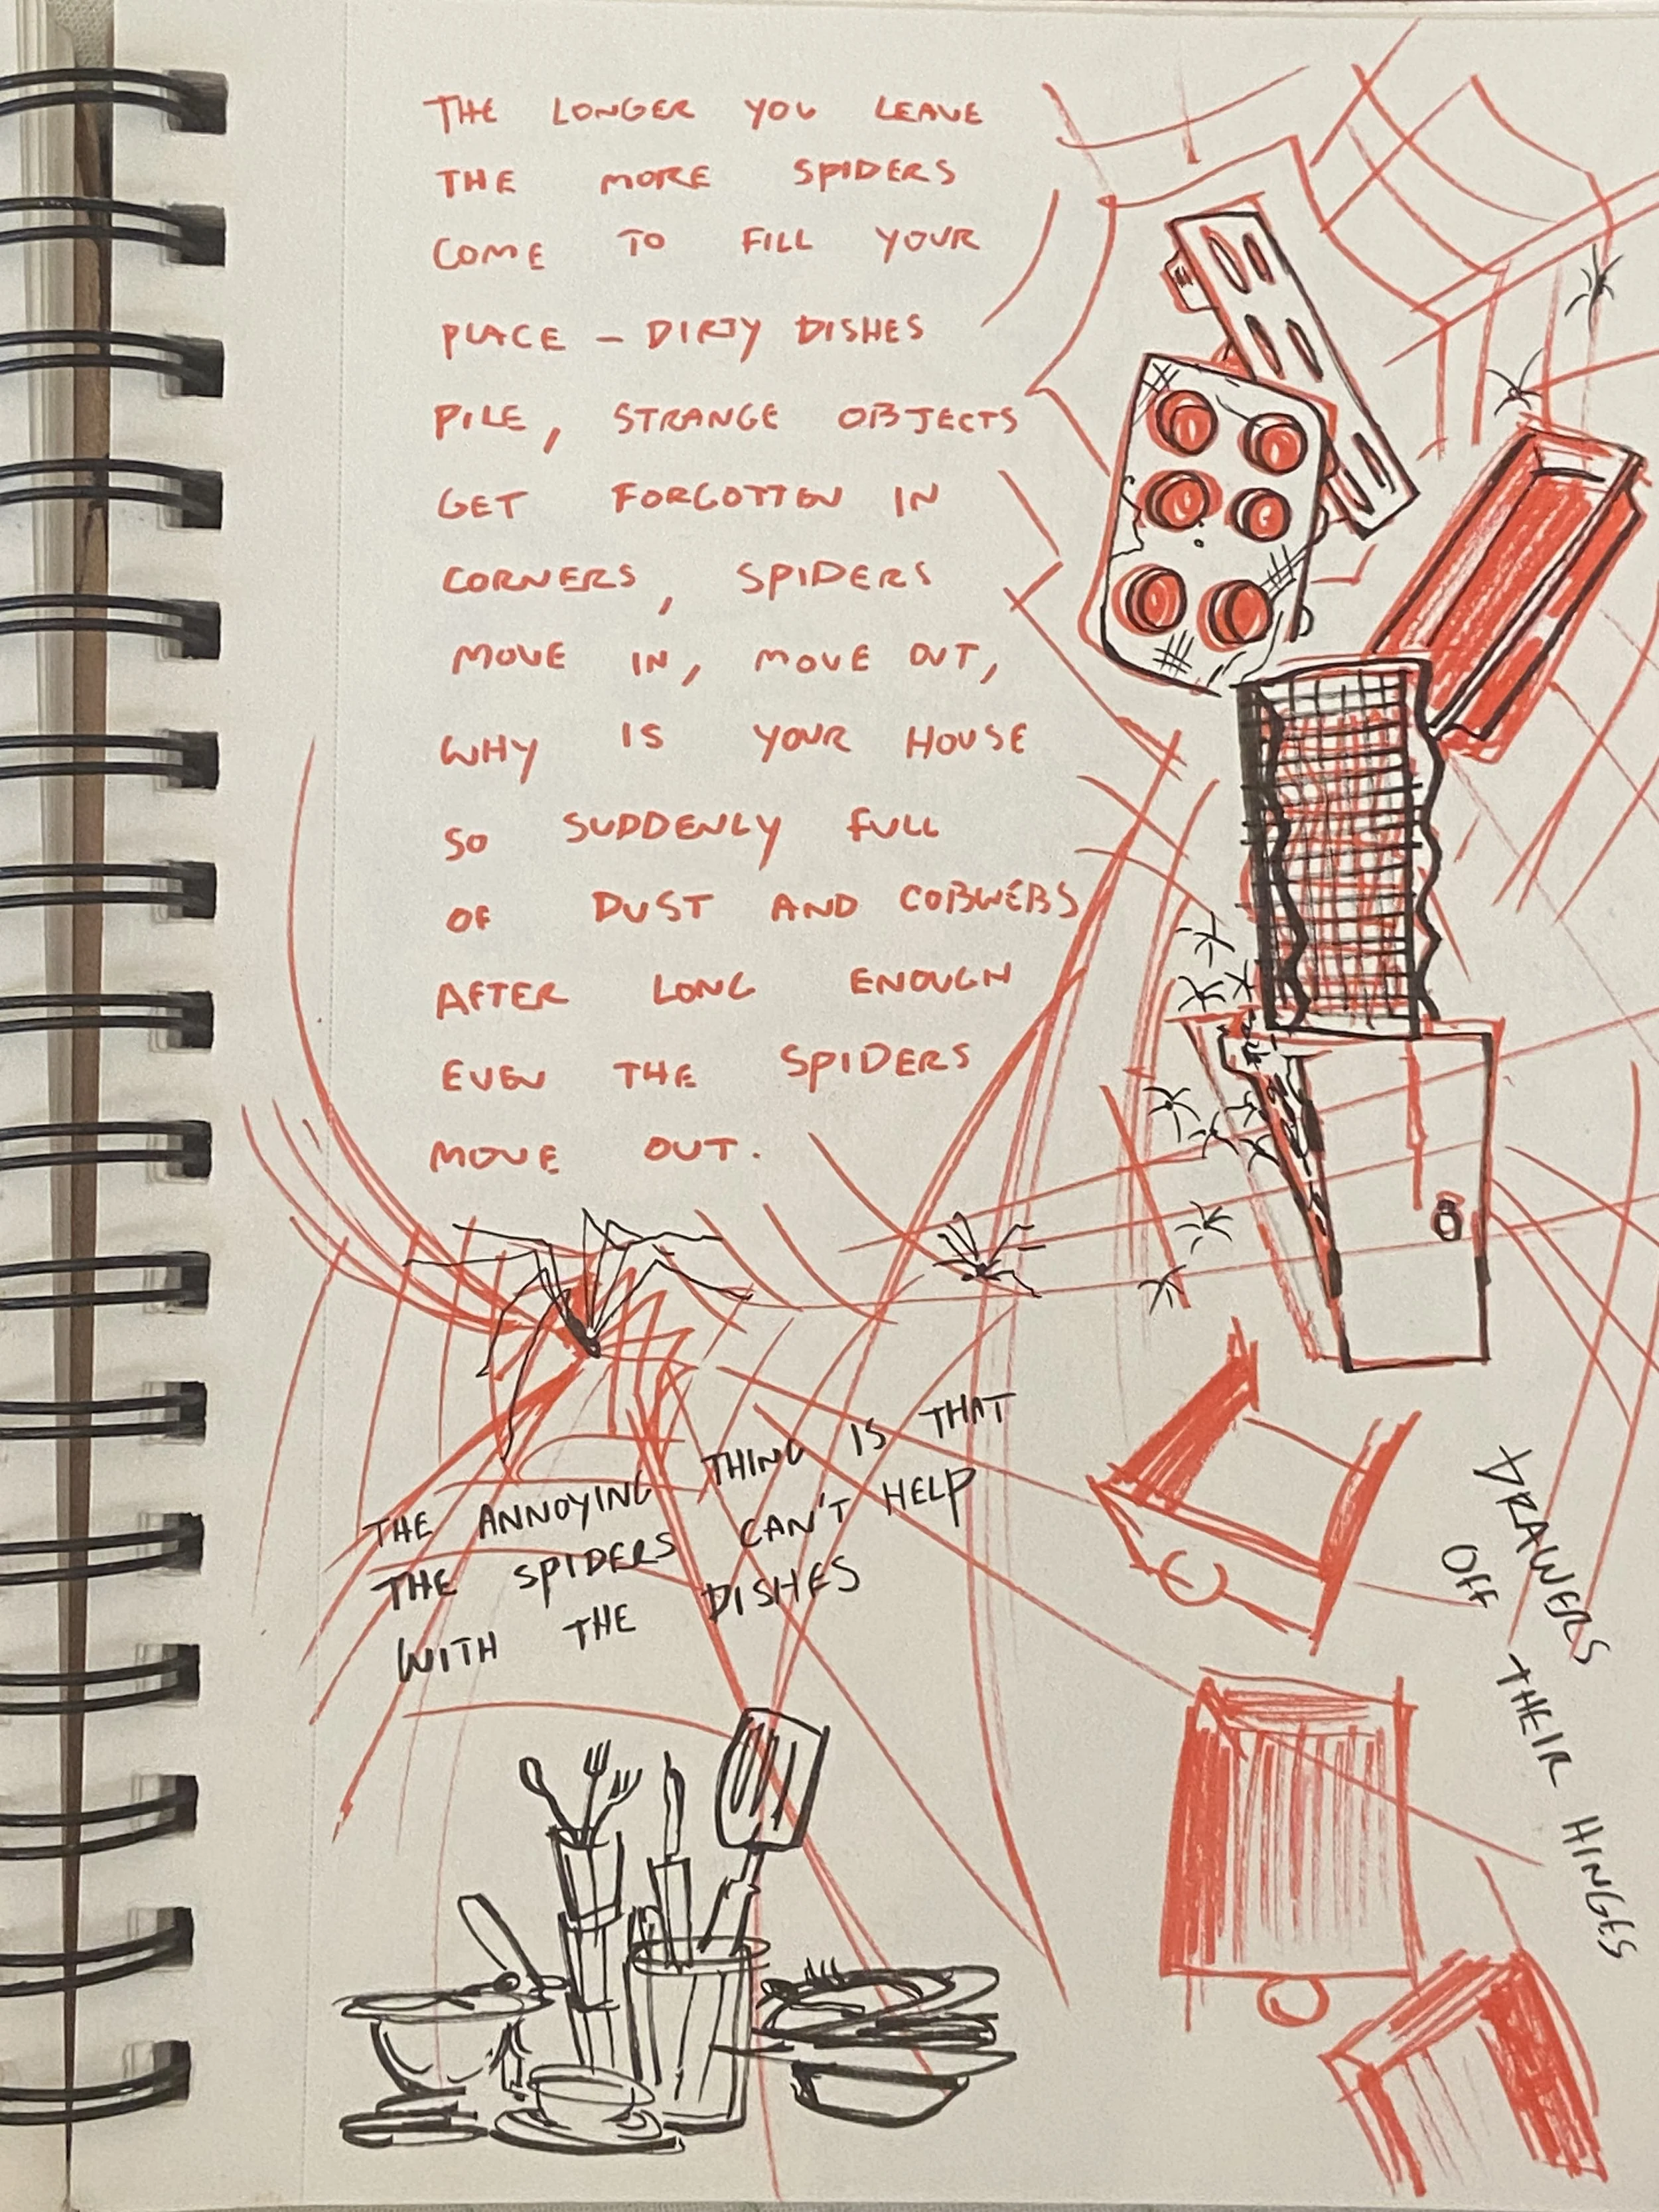 THE LONGER YOU LEAVE
THE MORE SPIDERS
COME TO FILL YOUR
PLACE – DIRTY DISHES
PILE, STRANGE OBJECTS
GET FORGOTTEN IN
CORNERS, SPIDERS
MOVE IN, MOVE OUT,
WHY IS YOUR HOUSE
SO SUDDENLY FULL
OF DUST AND COBWEBS
AFTER LONG ENOUGH
EVEN THE SPIDERS
MOVE OUT.
THE ANNOYING THING IS THAT
THE SPIDERS CAN'T HELP
WITH THE DISHES
DRAWERS
OFF THEIR HINGES